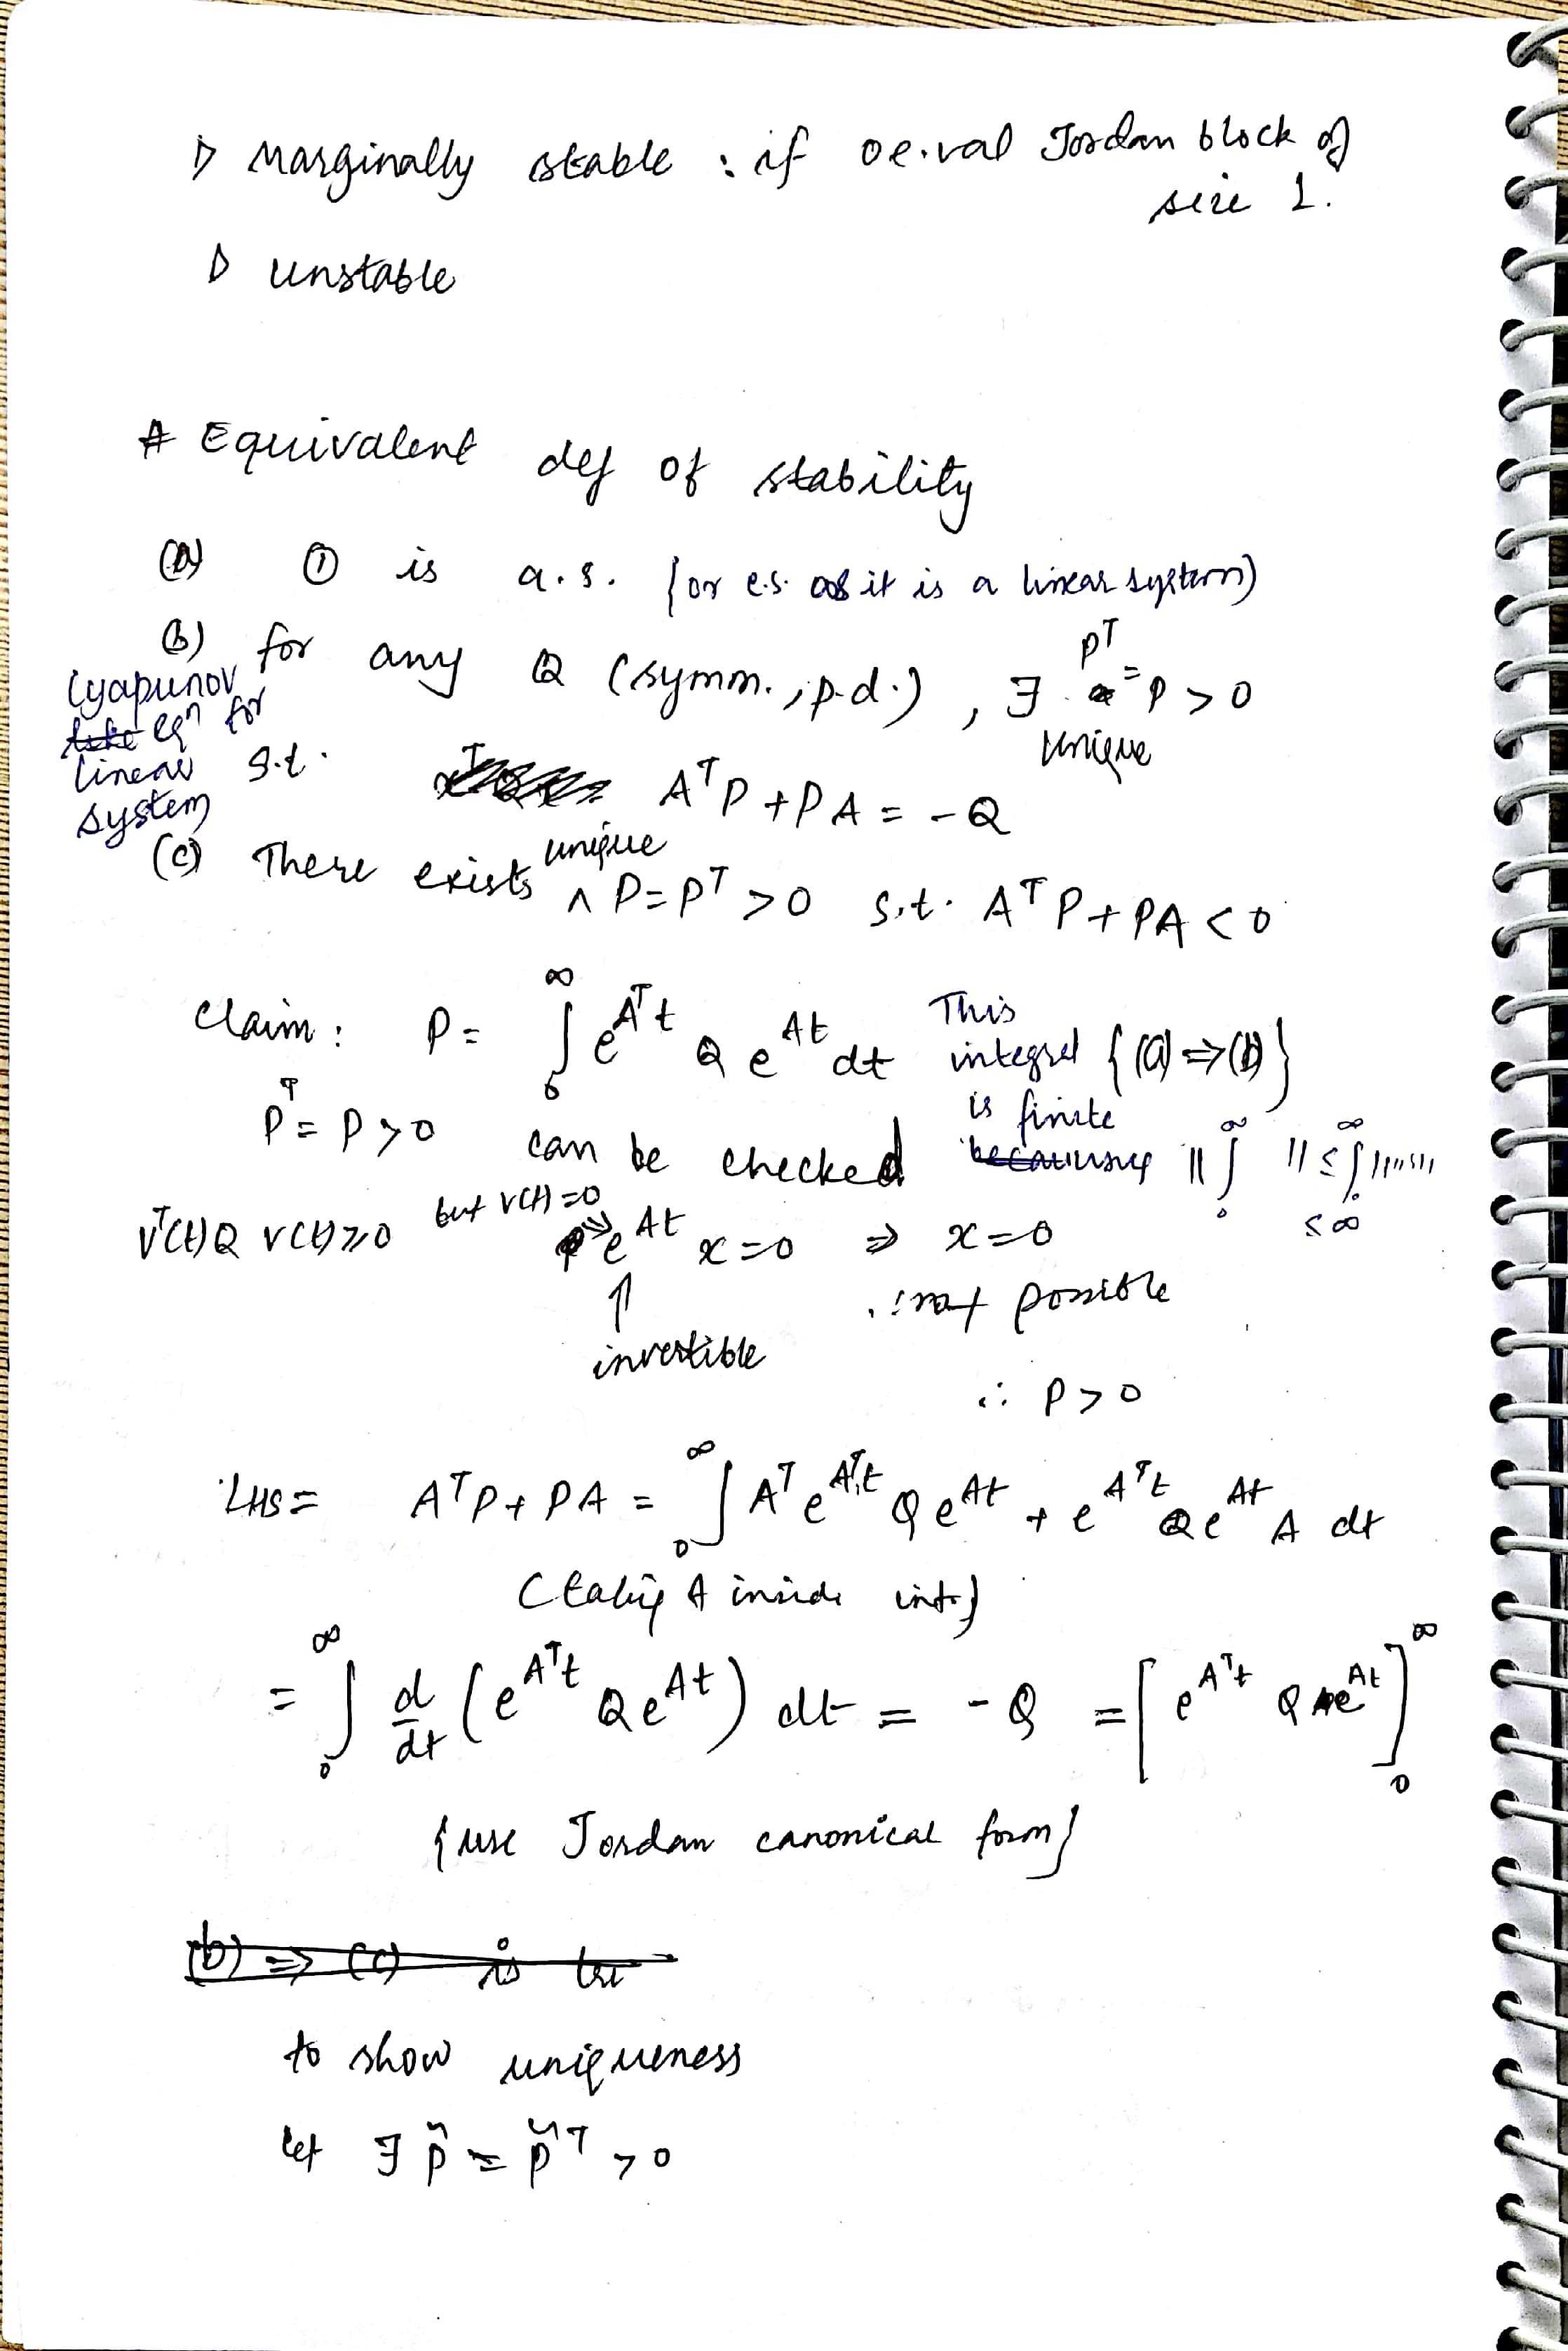 ▷ Marginally stable : if 0 e.val Jordan block of
size 1.
▷ Unstable
# Equivalent def of stability
(a) ① is a.s. {or e.s. as it is a linear system)
(b) for any Q (symm., p.d.), ∃ P^T = P > 0
unique
Lyapunov
eqn for
linear
system
s.t. A^T P + PA = -Q
(c) There exists ^ unique P = P^T > 0 s.t. A^T P + PA < 0
Claim: P = ∫_0^∞ e^{A^T t} Q e^{At} dt {(a) => (b)}
This
integral
is finite
because || ∫_0^∞ || ≤ ∫_0^∞ ||"s||
≤ ∞
P^T = P > 0 can be checked
v^T(t) Q v(t) ≥ 0 but v(t) = 0
=> e^{At} x = 0 => x = 0
↑
invertible
∴ not possible
∴ P > 0
LHS = A^T P + PA = ∫_0^∞ A^T e^{A^T t} Q e^{At} + e^{A^T t} Q e^{At} A dt
(taking A inside int.}
= ∫_0^∞ d/dt (e^{A^T t} Q e^{At}) dt = -Q = [e^{A^T t} Q e^{At}]_0^∞
{use Jordan canonical form}
(b) => (c) is tri
to show uniqueness
let ∃ P̃ = P̃^T > 0